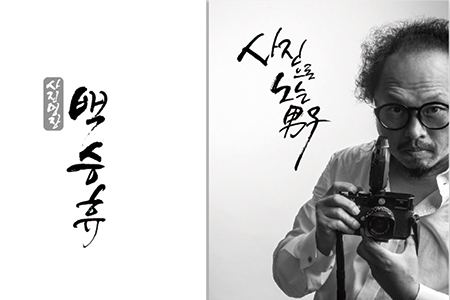 사진명장
백승휴
사진
으로
노는
男子